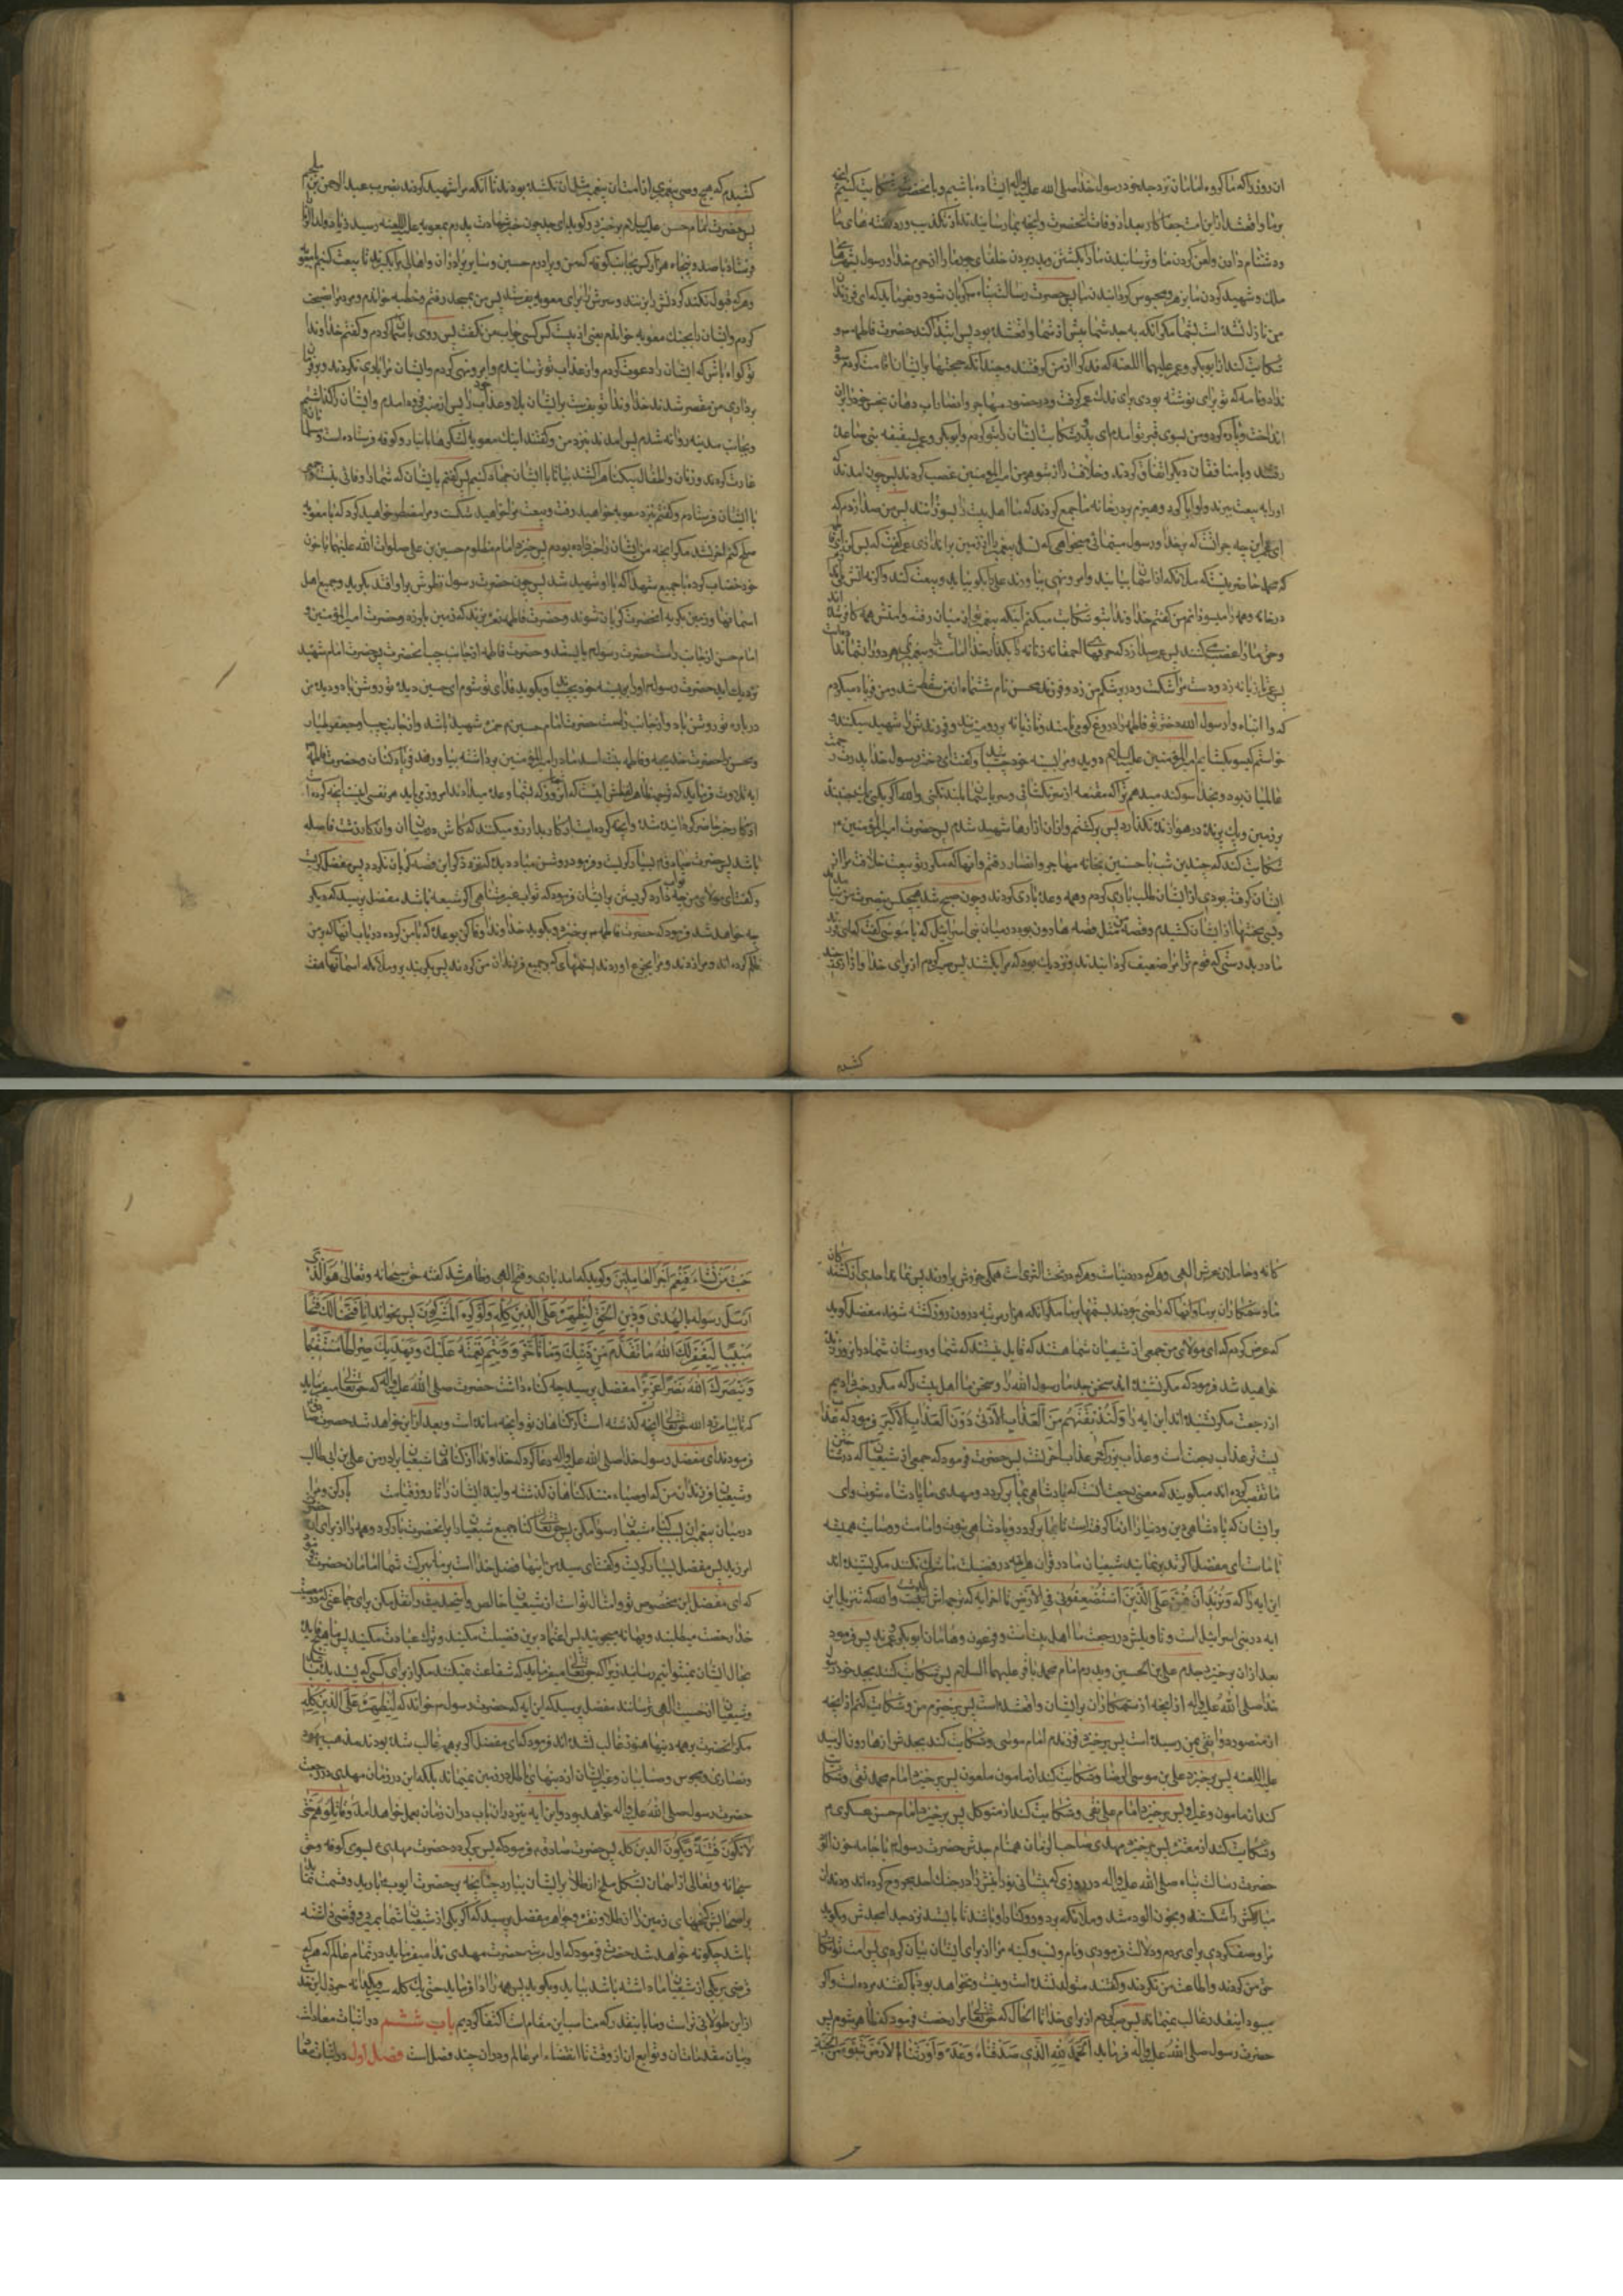 ان روز را که ما کروه امامان نزد جد خود رسول خدا صلی الله علیه واله ایستاده باشیم وبانحضرت شکایت کنیم انچه
بر ما واقع شد از این امت جفا کار بعد از وفات انحضرت وانچه بما رسانیدند از تکذیب ورد کفته های ما
ودشنام دادن ولعن کردن ما وترسانیدن ما را بکشتن وبدر بردن خلفای جور ما را از حرم خدا ورسول بشهرهای
ملک وشهید کردن ما بزهر ومحبوس کردانیدن ما پس حضرت رسالت پناه کریان شود وفرماید که ای فرزندان
من نازل نشده است بشما مکر انکه بجد شما پیش از شما واقع شده بود پس ابتدا کند حضرت فاطمه و
شکایت کند از ابوبکر وعمر که فدک را از من کرفتند وچندانکه حجتها بر ایشان اقامت کردم سود
نداد ونامه که تو برای من نوشته بودی برای فدک عمر کرفت ودر حضور مهاجر وانصار اب دهان نجس خود بران
انداخت وپاره کرد ومن بسوی قبر تو امدم ای پدر وشکایت ایشان را بتو کردم وابوبکر وعمر بسقیفه بنی ساعده
رفتند وبا منافقان دیکر اتفاق کردند وخلافت را از شوهر من امیرالمومنین غصب کردند پس چون امدند که
اورا به بیعت ببرند واو ابا کرد وهیزم بر در خانه ما جمع کردند که ما اهل بیت را بسوزانند پس من صدا زدم که
ای عمر این چه جراتست که بر خدا ورسول مینمائی میخواهی که نسل پیغمبر را از زمین براندازی عمر کفت که بس کن ای فاطمه
که محمد حاضر نیست که ملائکه از اسمان بیایند وامر ونهی بیاورند علی را بکو بیاید وبیعت کند واکر نه اتش می اندازم
در خانه وهمه را میسوزانم من کفتم خداوندا بتو شکایت میکنم اینکه پیغمبر تو از میان رفته وامتش همه کافر شده اند
وحق ما را غصب میکنند پس عمر صدا زد که حرفهای احمقانه زنانه را بکذار
پس عمر تازیانه زد ودست مرا شکست ودر بر شکم من زد وفرزند محسن نام ششماهه از من سقط شد ومن فریاد میکردم
که وا ابتاه وا رسول الله دختر تو فاطمه را دروغ کو می نامند وتازیانه بر او میزنند وفرزندش را شهید میکنند و
خواستم کیسو بکشایم امیرالمومنین علیه السلام دوید ومرا بسینه خود چسبانید وکفت ای دختر رسول خدا پدرت رحمت
عالمیان بود وبخدا سوکند میدهم ترا که مقنعه از سر نکشائی وسر باسمان بلند نکنی والله اکر بکنی یک جنبنده
بر زمین ویک پرنده در هوا زنده نکذارد پس برکشتم واز ان ازارها شهید شدم پس حضرت امیرالمومنین
شکایت کند که چندین شب با حسنین بخانه مهاجر وانصار رفتم وانها که مکرر تو بیعت خلافت مرا از
ایشان کرفته بودی از ایشان طلب یاری کردم وهمه وعده یاری کردند وچون صبح شد هیچکس بنصرت من نیامد
وبسی محنتها از ایشان کشیدم وقصه من مثل قصه هارون بود در میان بنی اسرائیل که با موسی کفت که ای فرزند
مادر بدرستی که قوم تو مرا ضعیف کردانیدند ونزدیک بود که مرا بکشند پس صبر کردم از برای خدا وازاری چند
کشیدم
کشیدم که هیچ وصی پیغمبری از امتان پیغمبر مثل ان نکشیده بودند تا انکه مرا شهید کردند بضرب عبدالرحمن بن ملجم
پس حضرت امام حسن علیه السلام برخیزد وکوید ای جد چون خبر شهادت پدرم بمعویه علیه اللعنه رسید زیاد ولدالزنا را
فرستاد با صد وپنجاه هزار کس بجانب کوفه که من وبرادرم حسین وسایر برادران واهالی مرا بکیرند تا بیعت کنیم با معویه
وهر که قبول نکند کردنش را بزند وسرش را برای معویه بفرستد پس من بمسجد رفتم وخطبه خواندم ومردم را نصیحت
کردم وایشان را بجنک معویه خواندم بغیر از بیست کس کسی جواب من نکفت پس روی باسمان کردم وکفتم خداوندا
تو کواه باش که ایشان را دعوت کردم واز عذاب تو ترسانیدم وامر ونهی کردم وایشان مرا یاری نکردند ودر فرمان
برداری من مقصر شدند خداوندا تو بفرست بر ایشان بلا وعذاب خود را پس از منبر فرود امدم وایشان را کذاشتم
وبجانب مدینه روانه شدم پس امدند بنزد من وکفتند اینک معویه لشکرها بانبار وکوفه فرستاده است ومسلمانان را
غارت کردند وزنان واطفال بیکناه را کشتند بیا تا با ایشان جهاد کنیم پس کفتم بایشان که شما را وفائی نیست وجمعی
با ایشان فرستادم وکفتم بنزد معویه خواهید رفت وبیعت مرا خواهید شکست ومرا مضطر خواهید کرد که با معویه
صلح کنم اخر نشد مکر انچه من ایشان را خبر داده بودم پس خیزد امام مظلوم حسین بن علی صلوات الله علیهما با خون
خود خضاب کرده با جمیع شهدا که با او شهید شدند پس چون حضرت رسول نظرش بر او افتد بکرید وجمیع اهل
اسمانها وزمین بکریه انحضرت کریان شوند وحضرت فاطمه نعره بزند که زمین بلرزد وحضرت امیرالمومنین و
امام حسن از جانب راست حضرت رسول بایستند وحضرت فاطمه از جانب چپ انحضرت پس حضرت امام شهید
نزدیک اید حضرت رسول اورا بر سینه خود بچسباند وبکوید فدای تو شوم ای حسین دیده تو روشن باد ودیده من
درباره تو روشن باد واز جانب راست حضرت امام حسین حمزه شهید باشد واز جانب چپ او جعفر طیار
ومحسن را حضرت خدیجه وفاطمه بنت اسد مادر امیرالمومنین برداشته بیاورند فریاد کنان وحضرت فاطمه
ایه تلاوت فرماید که ترجمه ظاهر لفظش اینست که این روزیست که بشما وعده میدادند امروز می یابد هر نفسی انچه کرده است
از کار خیر حاضر کردانیده شده وانچه کرده است از کار بد ارزو میکند که کاش در میان او ان وان کار زشت فاصله
باشد پس حضرت صادق بسیار کریست وفرمود روشن مباد دیده که نزد ذکر این قصه کریان نکردد پس مفضل کریست
وکفت ای مولای من چه ثواب دارد کریستن بر ایشان فرمود که ثواب غیر متناهی اکر شیعه باشد مفضل پرسید که دیکر
چه خواهد شد فرمود که حضرت فاطمه برخیزد وبکوید خداوندا وفا کن بوعده که با من کرده در باب انها که بر من
ظلم کرده اند ومرا زدند ومرا بجزع اوردند بستمهای که بر جمیع فرزندان من کردند پس بکریند بر او ملائکه اسمانهای هفت
کانه وحاملان عرش الهی وهر که در دنیاست وهر که در تحت الثری است همکی خروش براورند پس نماند احدی از کشندکان
ما وستمکاران بر ما وانها که راضی بودند بستمها بر ما مکر انکه هزار مرتبه در ان روز کشته شوند مفضل کوید
که عرض کردم که ای مولای من جمعی از شیعیان شما هستند که قایل نیستند که شما ودوستان شما در ان روز زنده
خواهید شد فرمود که مکر نشنیده اند سخن جد ما رسول الله را وسخن ما اهل بیت را که مکرر خبر دادیم
از رجعت مکر نشنیده اند این ایه را وَلَنُذِیقَنَّهُمْ مِنَ الْعَذَابِ الْاَدْنٰی دُونَ الْعَذَابِ الْاَکْبَرِ فرمود که عذاب
پست تر عذاب رجعت است وعذاب بزرکتر عذاب اخرتست پس حضرت فرمود که جمعی از شیعیان که در شناختن
ما تقصیر کرده اند میکویند که معنی رجعت انست که پادشاهی بما برکردد ومهدی ما پادشاه شود وای
بر ایشان که پادشاهی دین ودنیا را از ما کرفته است تا بما برکردد وپادشاهی نبوت وامامت ووصایت همیشه
با ماست ای مفضل اکر تدبر نمایند شیعیان ما در قران هراینه در فضیلت ما شک نکنند مکر نشنیده اند
این ایه را که وَنُرِیدُ اَنْ نَمُنَّ عَلَی الَّذِینَ اسْتُضْعِفُوا فِی الْاَرْضِ تا اخر ایه که ترجمه اش کذشت والله که تنزیل این
ایه در بنی اسرائیل است وتاویلش در رجعت ما اهل بیت است وفرعون وهامان ابوبکر وعمرند پس فرمود
بعد از ان برخیزد جدم علی بن الحسین وپدرم امام محمد باقر علیهما السلام پس شکایت کنند بجد خود رسول
خدا صلی الله علیه واله از انچه از ستمکاران بر ایشان واقع شده است پس برخیزم من وشکایت کنم از انچه
از منصور دوانقی بمن رسیده است پس برخیزد فرزندم امام موسی وشکایت کند بجدش از هارون الرشید
علیه اللعنه پس برخیزد علی بن موسی الرضا وشکایت کند از مامون ملعون پس برخیزد امام محمد تقی وشکایت
کند از مامون وغیر او پس برخیزد امام علی نقی وشکایت کند از متوکل پس برخیزد امام حسن عسکری
وشکایت کند از معتز پس برخیزد مهدی صاحب الزمان همنام جدش حضرت رسول با جامه خون الود
حضرت رسالت پناه صلی الله علیه واله در روزی که پیشانی نورانیش را در جنک احد مجروح کرده اند ودندان
مبارکش را شکستند وبخون الوده شد وملائکه بر دور وکنار او باشند تا بایستد نزد جد امجدش وبکوید
مرا وصف کردی برای مردم ودلالت فرمودی ونام ونسب وکنیه مرا از برای ایشان بیان کردی پس امت تو انکار
حق من کردند واطاعت من نکردند وکفتند متولد نشده است ونیست ونخواهد بود یا کفتند مرده است واکر
میبود اینقدر غائب نمیماند پس صبر کردم از برای خدا تا الحال که حق تعالی مرا رخصت فرمود که ظاهر شوم پس
حضرت رسول صلی الله علیه واله فرماید اَلْحَمْدُ لِلّٰهِ الَّذِی صَدَقَنَا وَعْدَهُ وَاَوْرَثَنَا الْاَرْضَ نَتَبَوَّءُ مِنَ الْجَنَّةِ
حَیْثُ نَشَاءُ فَنِعْمَ اَجْرُ الْعَامِلِینَ وکوید که امد یاری وفتح الهی وظاهر شد کفته حق سبحانه وتعالی هُوَ الَّذِی
اَرْسَلَ رَسُولَهُ بِالْهُدٰی وَدِینِ الْحَقِّ لِیُظْهِرَهُ عَلَی الدِّینِ کُلِّهِ وَلَوْ کَرِهَ الْمُشْرِکُونَ پس بخواند اِنَّا فَتَحْنَا لَکَ فَتْحًا
مُبِینًا لِیَغْفِرَ لَکَ اللهُ مَا تَقَدَّمَ مِنْ ذَنْبِکَ وَمَا تَاَخَّرَ وَیُتِمَّ نِعْمَتَهُ عَلَیْکَ وَیَهْدِیَکَ صِرَاطًا مُسْتَقِیمًا
وَیَنْصُرَکَ اللهُ نَصْرًا عَزِیزًا مفضل پرسید چه کناه داشت حضرت صلی الله علیه واله که حق تعالی میفرماید
که تا بیامرزد الله تعالی انچه کذشته است از کناهان تو وانچه مانده است وبعد از این خواهد شد حضرت صادق
فرمودند ای مفضل رسول خدا صلی الله علیه واله دعا کرد که خداوندا کناهان شیعیان برادر من علی بن ابی طالب
وشیعیان فرزندان من که اوصیاء منند کناهان کذشته وایند ایشان را تا روز قیامت بار کن ومرا
در میان پیغمبران بسبب کناه شیعیان رسوا مکن پس حق تعالی کناه جمیع شیعیان را بر انحضرت بار کرد وهمه را از برای ان حضرت
امرزید پس مفضل بسیار کریست وکفت ای سید من اینها فضل خداست بر ما ببرکت شما امامان حضرت فرمود
که ای مفضل این مخصوص تو وامثال تو است از شیعیان خالص واین حدیث را نقل مکن برای جماعتی که در معصیت
خدا رخصت میطلبند وبهانه میجویند پس اعتماد بر این فضیلت میکنند وترک عبادت میکنند پس ما هیچ فایده
بحال ایشان نمیتوانیم رسانید زیرا که حق تعالی میفرماید که شفاعت نمیکنند مکر از برای کسی که پسندیده باشد
وشیعیان از خشیت الهی ترسانند مفضل پرسید که این ایه که حضرت رسول خواند که لِیُظْهِرَهُ عَلَی الدِّینِ کُلِّهِ
مکر انحضرت بر همه دینها هنوز غالب نشده اند فرمود که ای مفضل اکر بر همه غالب شده بودند مذهب یهود
ونصاری ومجوس وصابیان وغیر ایشان از دینهای باطل در زمین نمیماند بلکه این در زمان مهدی ورجعت
حضرت رسول صلی الله علیه واله خواهد بود واین ایه نیز در ان باب در ان زمان بعمل خواهد امد وَقَاتِلُوهُمْ حَتّٰی
لَا تَکُونَ فِتْنَةٌ وَیَکُونَ الدِّینُ کله پس حضرت صادق فرمود که پس برکردد حضرت مهدی بسوی کوفه وحق
سبحانه وتعالی از اسمان بشکل ملخ از طلا بر ایشان ببارد چنانچه بر حضرت ایوب بارید وقسمت نماید
بر اصحابش کنجهای زمین را از طلا ونقره وجواهر مفضل پرسید که اکر یکی از شیعیان شما بمیرد وقرضی داشته
باشد چکونه خواهد شد حضرت فرمود که اول مرتبه حضرت مهدی ندا میفرماید در تمام عالم که هر که
قرضی بر یکی از شیعیان ما داشته باشد بیاید وبکوید پس همه را ادا فرماید حتی یک کله سیر ویکدانه خردل
از این طولانی تر است وما باینقدر که مناسب این مقام است اکتفا کردیم باب ششم در اثبات معاد است
وبیان مقدمات ان وتوابع ان از وقت تا انقضاء امر عالم ودر ان چند فصل است فصل اول در اثبات معاد